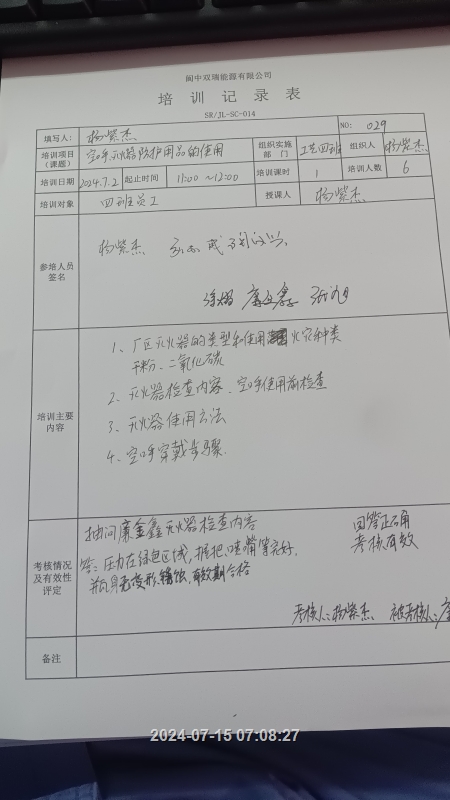 阆中双瑞能源有限公司
培训记录表
SR/JL-SC-014
填写人: 杨紫杰 NO: 029
培训项目（课题） 空呼、灭火器防护用品的使用 组织实施部门 工艺四班 组织人 杨紫杰
培训日期 2024.7.2 起止时间 11:00 ~12:00 培训课时 1 培训人数 6
培训对象 四班员工 授课人 杨紫杰
参培人员签名
杨紫杰
培训主要内容
1、厂区灭火器的类型和使用 火灾种类
干粉、二氧化碳
2、灭火器检查内容、空呼使用前检查
3、灭火器使用方法
4、空呼穿戴步骤.
考核情况及有效性评定
抽问 鑫灭火器检查内容 回答正确
答:压力在绿色区域,握把、喷嘴等完好, 考核有效
瓶身无变形、锈蚀、有效期合格
考核人:杨紫杰、 被考核人:
备注
2024-07-15 07:08:27